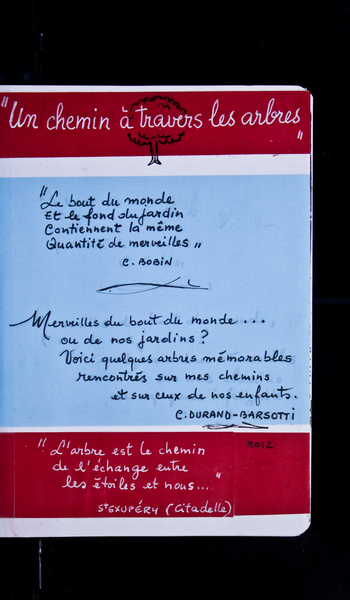 "Un chemin à travers les arbres"
"Le bout du monde
Et le fond du jardin
Contiennent la même
Quantité de merveilles"
C. BOBIN
Merveilles du bout du monde...
ou de nos jardins?
Voici quelques arbres mémorables
rencontrés sur mes chemins
et sur ceux de nos enfants.
C. DURAND-BARSOTTI
2012
"L'arbre est le chemin
de l'échange entre
les étoiles et nous..."
St EXUPÉRY (Citadelle)